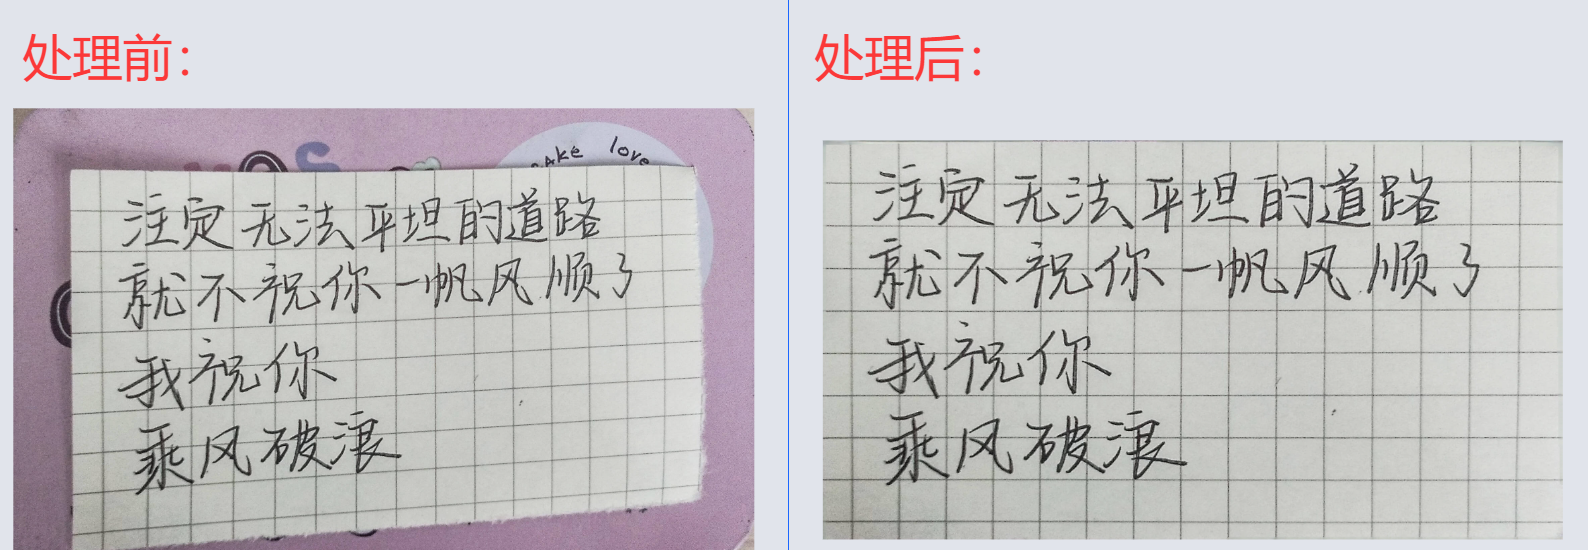 处理前：
make love
注定无法平坦的道路
就不祝你一帆风顺了
我祝你
乘风破浪
处理后：
注定无法平坦的道路
就不祝你一帆风顺了
我祝你
乘风破浪